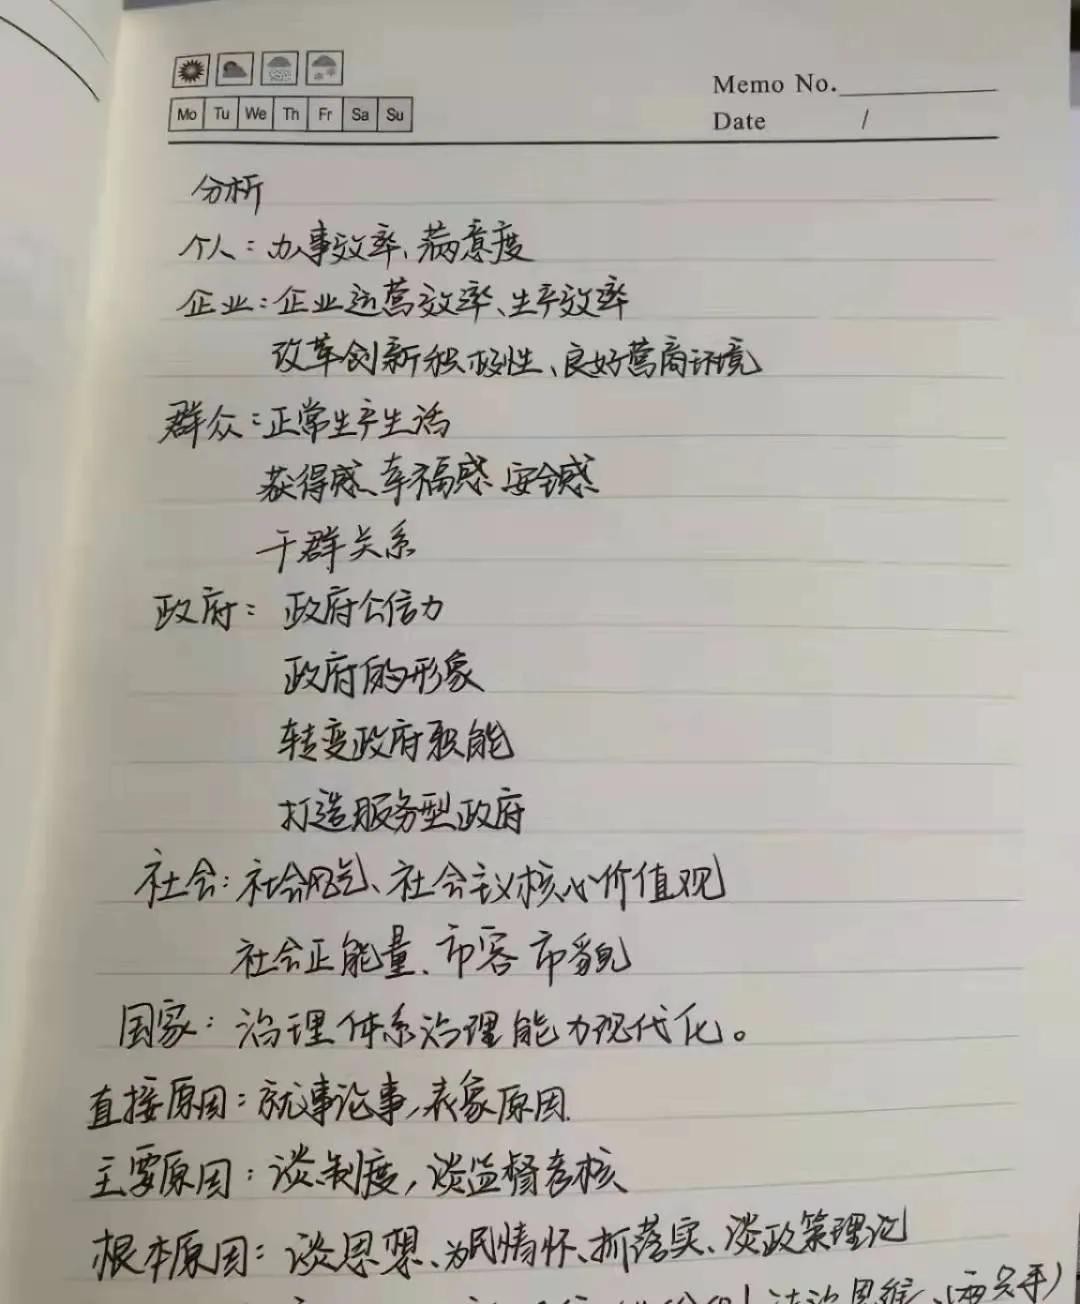 Memo No.
Mo Tu We Th Fr Sa Su
Date /
分析
个人：办事效率、满意度
企业：企业运营效率、生产效率
改革创新积极性、良好营商环境
群众：正常生产生活
获得感、幸福感 安全感
干群关系
政府：政府公信力
政府的形象
转变政府职能
打造服务型政府
社会：社会风气、社会主义核心价值观
社会正能量、市容市貌
国家：治理体系治理能力现代化。
直接原因：就事论事，表象原因.
主要原因：谈制度，谈监督考核
根本原因：谈思想、为民情怀、抓落实、谈政策理论
法治思维、(两只手)